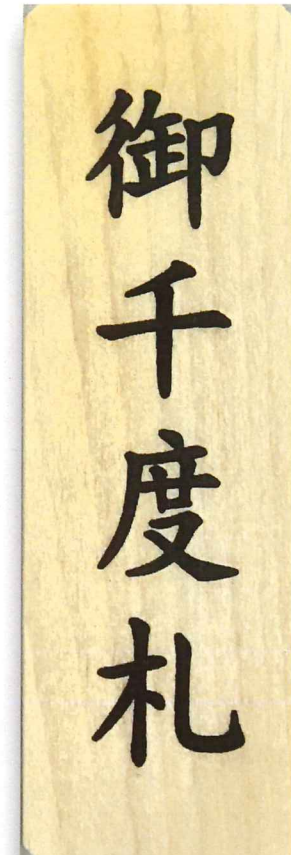 御千度札